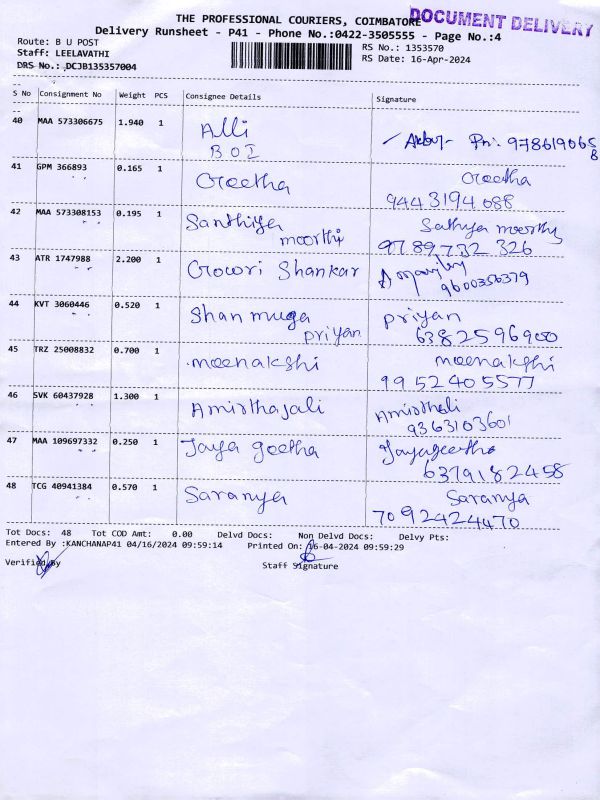 THE PROFESSIONAL COURIERS, COIMBATORE
DOCUMENT DELIVERY
Delivery Runsheet - P41 - Phone No.:0422-3505555 - Page No.:4
Route: B U POST
RS No.: 1353570
Staff: LEELAVATHI
RS Date: 16-Apr-2024
DRS No.: DCJB135357004
S No Consignment No Weight PCS Consignee Details Signature
40 MAA 573306675 1.940 1 Alli
BOI
Ph: 978619065
8
41 GPM 366893 0.165 1 Geetha Geetha
9443194688
42 MAA 573308153 0.195 1 Santhiya Sathya moorthy
moorthi 9789732 326
43 ATR 1747988 2.200 1 Gowri Shankar
9600356379
44 KVT 3060446 0.520 1 Shan muga priyan
priyan 6382596900
45 TRZ 25008832 0.700 1 meenakshi meenakshi
9952405577
46 SVK 60437928 1.300 1 Amirthajali
9363103601
47 MAA 109697332 0.250 1 Jaya geetha Jayageetha
6379182458
48 TCG 40941384 0.570 1 Saranya Saranya
7092424470
Tot Docs: 48 Tot COD Amt: 0.00 Delvd Docs: Non Delvd Docs: Delvy Pts:
Entered By :KANCHANAP41 04/16/2024 09:59:14 Printed On: 16-04-2024 09:59:29
Verified By Staff Signature